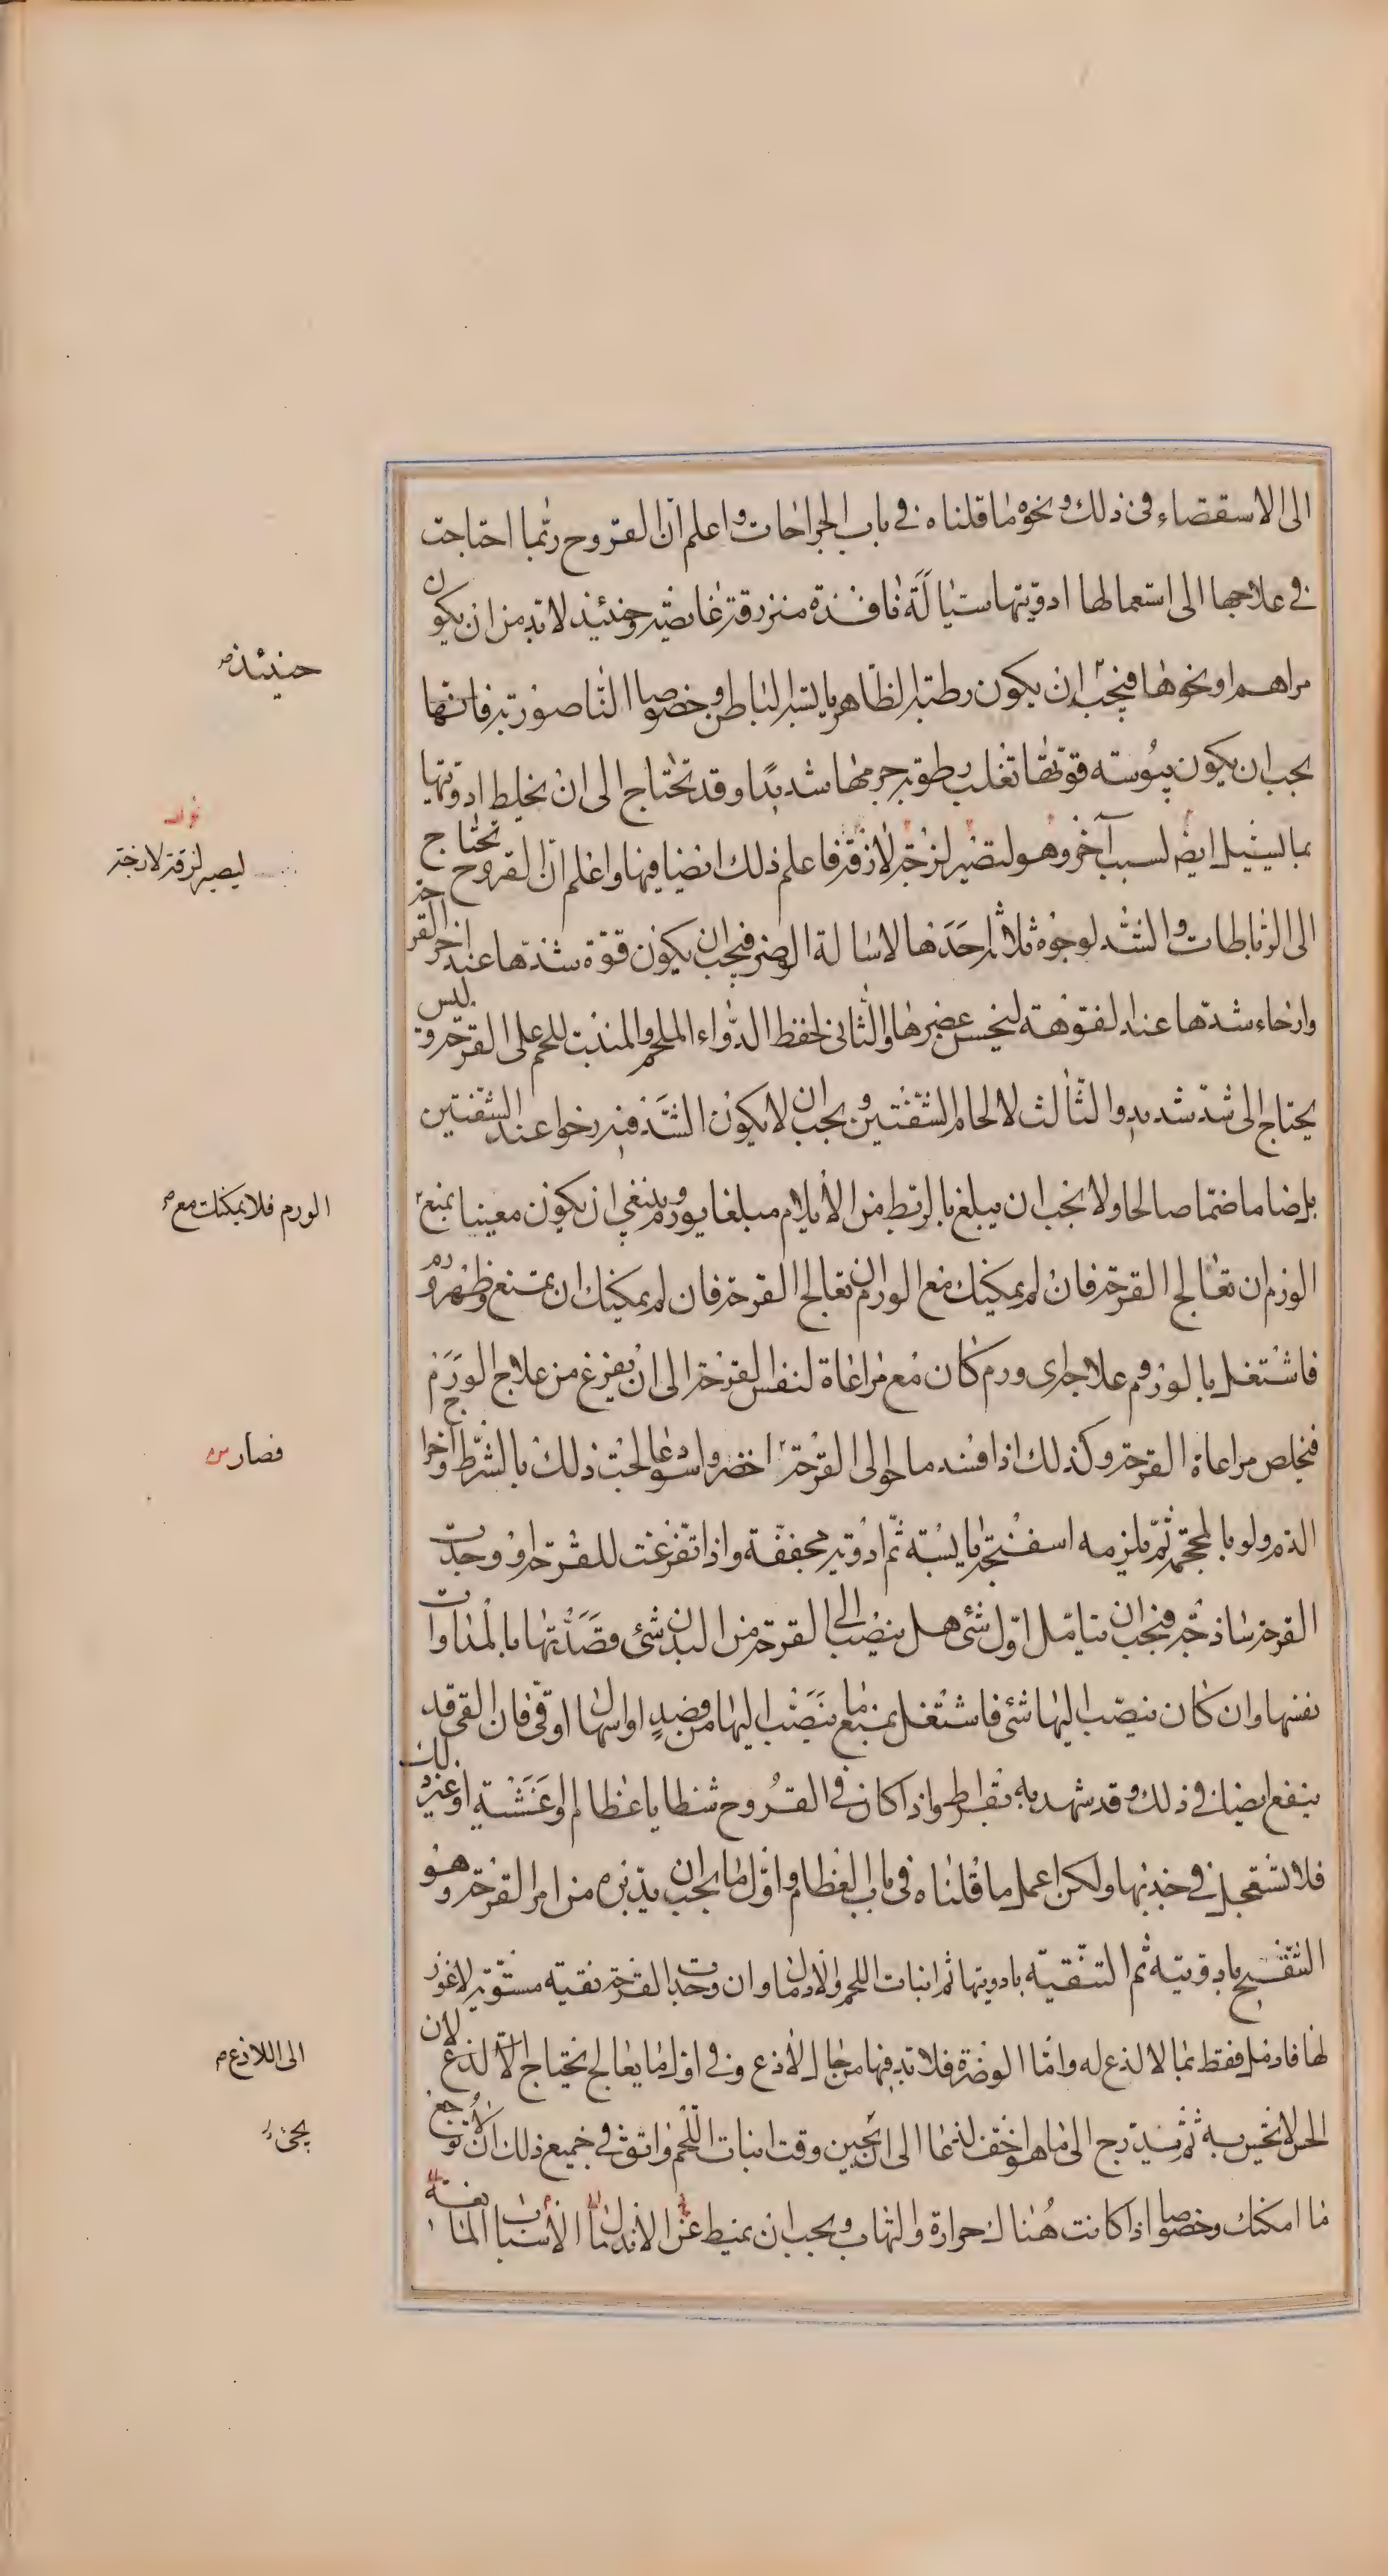 الى الاستقصاء فى ذلك ونحوه ما قلناه فى باب الجراحات واعلم ان القروح ربما احتاجت
فى علاجها الى استعمالها ادويتها سيالة نافذة منزرقة غائصة وحينئذ لا بد من ان يكون
مراهم او نحوها فيجب ان يكون رطبة الظاهر يابسة الباطن وخصوصا الناصورية فانها
يجب ان يكون يبوسته قوتها تغلب رطوبة جرمها شديدا وقد تحتاج الى ان يخلط ادويتها
بما يسيل ايضا لسبب آخر وهو لتصير لزجة لازقة فاعلم ذلك ايضا فيها واعلم ان القروح تحتاج
الى الرباطات والشد لوجوه ثلاثة احدها لاسالة الوضر فيجب ان يكون قوة شدها عند اخر القرحة
وارخاء شدها عند الفوهة لينحبس عضيرها والثانى لحفظ الدواء الملحم والمنبت للحم على القرحة وليس
يحتاج الى شد شديد والثالث لالحام الشفتين ويجب ان لا يكون الشد فيه رخوا عند الشفتين
بل ضاما ضما صالحا ولا يجب ان يبلغ بالربط من الايلام مبلغا يورم وينبغى ان يكون معينا بمنع
الورم ان تعالج القرحة فان لم يمكنك مع الورم ان تعالج القرحة فان لم يمكنك ان يمنع وظهر ورم
فاشتغل بالورم وعلاج اى ورم كان مع مراعاة لنفس القرحة الى ان يفرغ من علاج الورم
فيخلص مراعاة القرحة وكذلك اذا فسد ما حوالى القرحة اخضر واسود عالجت ذلك بالشرط واخراج
الدم ولو بالمحجمة ثم يلزمه اسفنجة يابسة ثم ادوية مجففة واذا تفرغت للقرحة او وجدت
القرحة ساذجة فيجب ان تتامل اول شئ هل ينصب الى القرحة من البدن شئ قصدتها بالمداوات
نفسها وان كان ينصب اليها شئ فاشتغل بمنع ما ينصب اليها من فصد او اسهال او قئ فان القئ قد
ينفع ايضا فى ذلك وقد شهد به بقراط واذا كان فى القروح شظايا عظام او غشية او غير ذلك
فلا تستعجل فى جذبها ولكن اعمل ما قلناه فى باب العظام واول ما يجب ان يدبره من امر القرحة وهو
التقيح بادويته ثم التنقية بادويتها ثم انبات اللحم والادمال وان وجدت القرحة نقية مستوية لا غور
لها فادمل فقط بما لا لذع له واما الوضرة فلا بد فيها من حال لاذع وفى اول ما يعالج يحتاج الى الذع لان
الحس لا تحس به ثم يتدرج الى ما هو اخف لذعا الى ان يجين وقت انبات اللحم واتوق فى جميع ذلك ان لا توجع
ما امكنك وخصوصا اذا كانت هناك حرارة والتهاب ويجب ان يميط عن الاندمال الاسباب المانعة
حينئذ
ليصير لزقة لازجة
الورم فلا يمكنك مع
فصار
الى اللاذع
يجئ